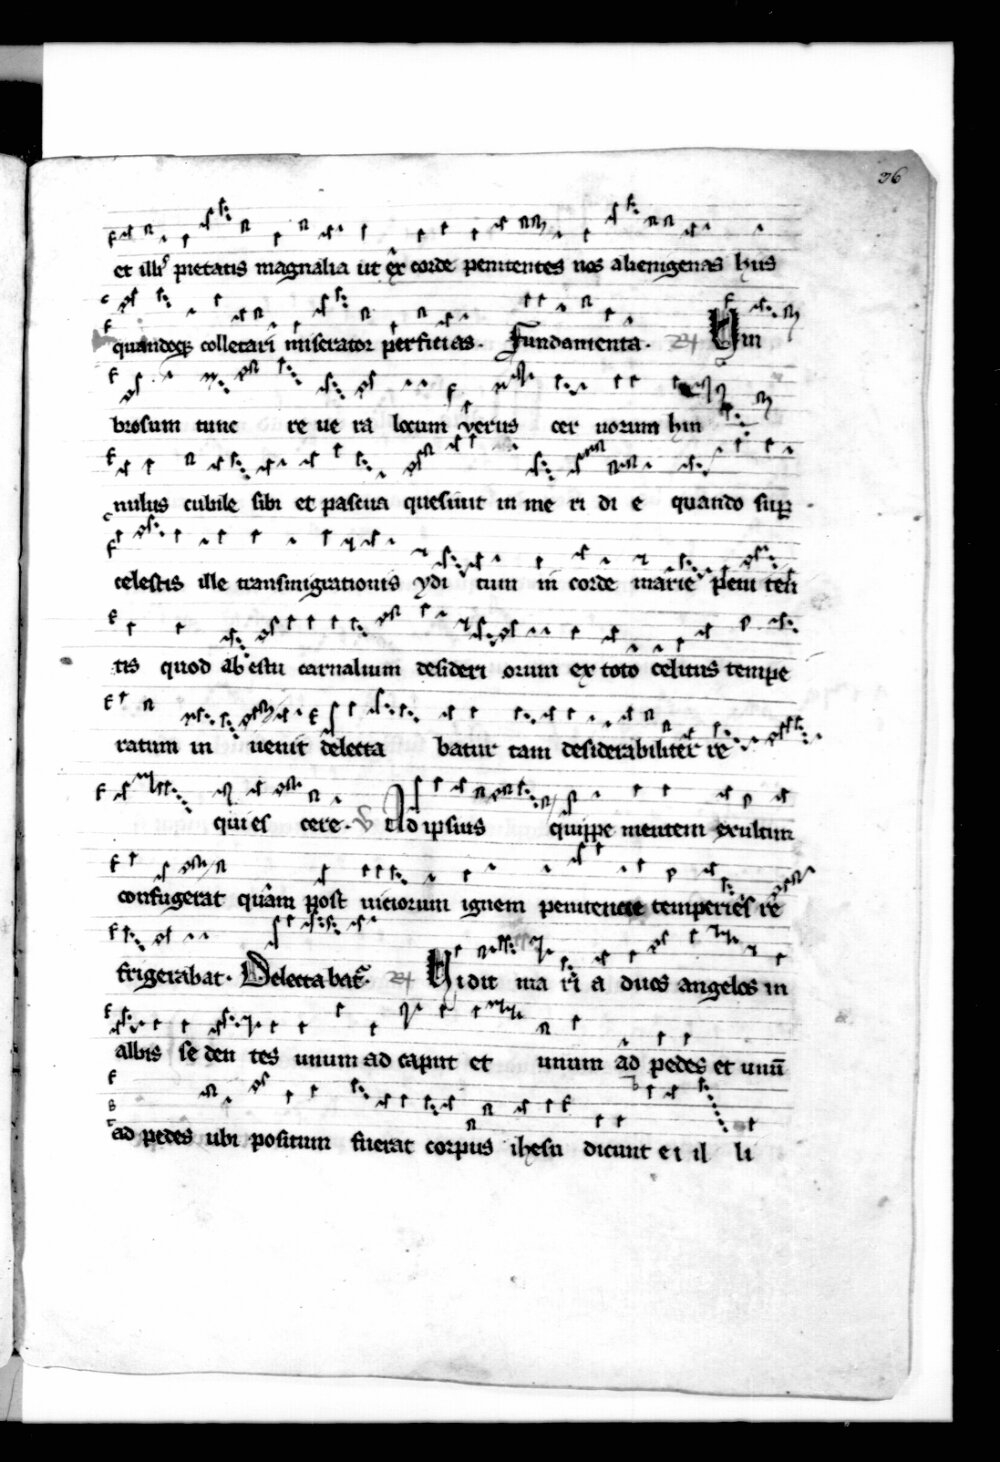 36
et illiꝰ pietatis magnalia ut ex corde penitentes nos alienigenas hus
quandoqꝫ colletari miserator perficias. Fundamenta. R Um
brosum tunc re ue ra locum verus cer uorum hin
nulus cubile sibi et pascua quesiuit in me ri di e quando sup
celestis ille transmigrationis ydi tum in corde marie peni ten
tis quod ab estu carnalium desideri orum ex toto celitus tempe
ratum in uenit delecta batur tam desiderabiliter re
qui es cere. V Ad ipsius quippe mentem exultim
confugerat quam post uiciorum ignem penitencie temperies re
frigerabat. Delecta bat. R Uidit ma ri a duos angelos in
albis se den tes unum ad caput et unum ad pedes et unū
ad pedes ubi positum fuerat corpus ihesu dicunt e i il li